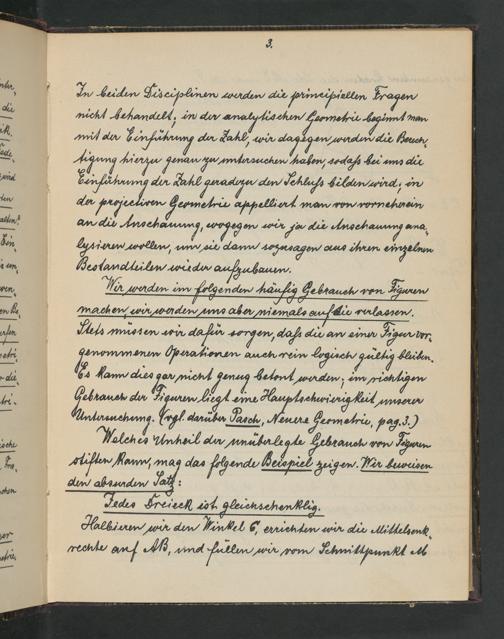 3.
In beiden Disciplinen werden die principiellen Fragen
nicht behandelt; in der analytischen Geometrie beginnt man
mit der Einführung der Zahl, wir dagegen werden die Berech-
tigung hierzu genau zu untersuchen haben, sodaß bei uns die
Einführung der Zahl geradezu den Schluß bilden wird; in
der projectiven Geometrie appelliert man von vorneherein
an die Anschauung, wogegen wir ja die Anschauung ana-
lysieren wollen, um sie dann sozusagen aus ihren einzelnen
Bestandteilen wieder aufzubauen.
Wir werden im folgenden häufig Gebrauch von Figuren
machen, wir werden uns aber niemals auf sie verlassen.
Stets müssen wir dafür sorgen, daß die an einer Figur vor-
genommenen Operationen auch rein logisch gültig bleiben.
Es kann dies gar nicht genug betont werden; im richtigen
Gebrauch der Figuren liegt eine Hauptschwierigkeit unserer
Untersuchung. (vgl. darüber Pasch, Neuere Geometrie, pag. 3.)
Welches Unheil der unüberlegte Gebrauch von Figuren
stiften kann, mag das folgende Beispiel zeigen. Wir beweisen
den absurden Satz:
Jedes Dreieck ist gleichschenklig.
Halbieren wir den Winkel C, errichten wir die Mittelsenk-
rechte auf AB, und fällen wir vom Schnittpunkt M